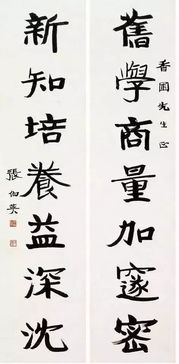 舊學商量加邃密
香圃先生正
新知培養益深沈
張伯英